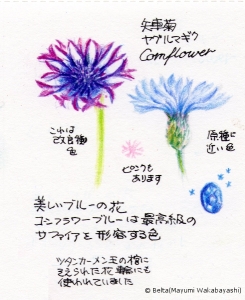 矢車菊
ヤグルマギク
Cornflower
これは
改良種
色
ピンクも
あります
原種に
近い色
美しいブルーの花
コーンフラワーブルーは最高級の
サファイアを形容する色
ツタンカーメン王の棺に
そえられた花輪にも
使われていました
© Belta(Mayumi Wakabayashi)